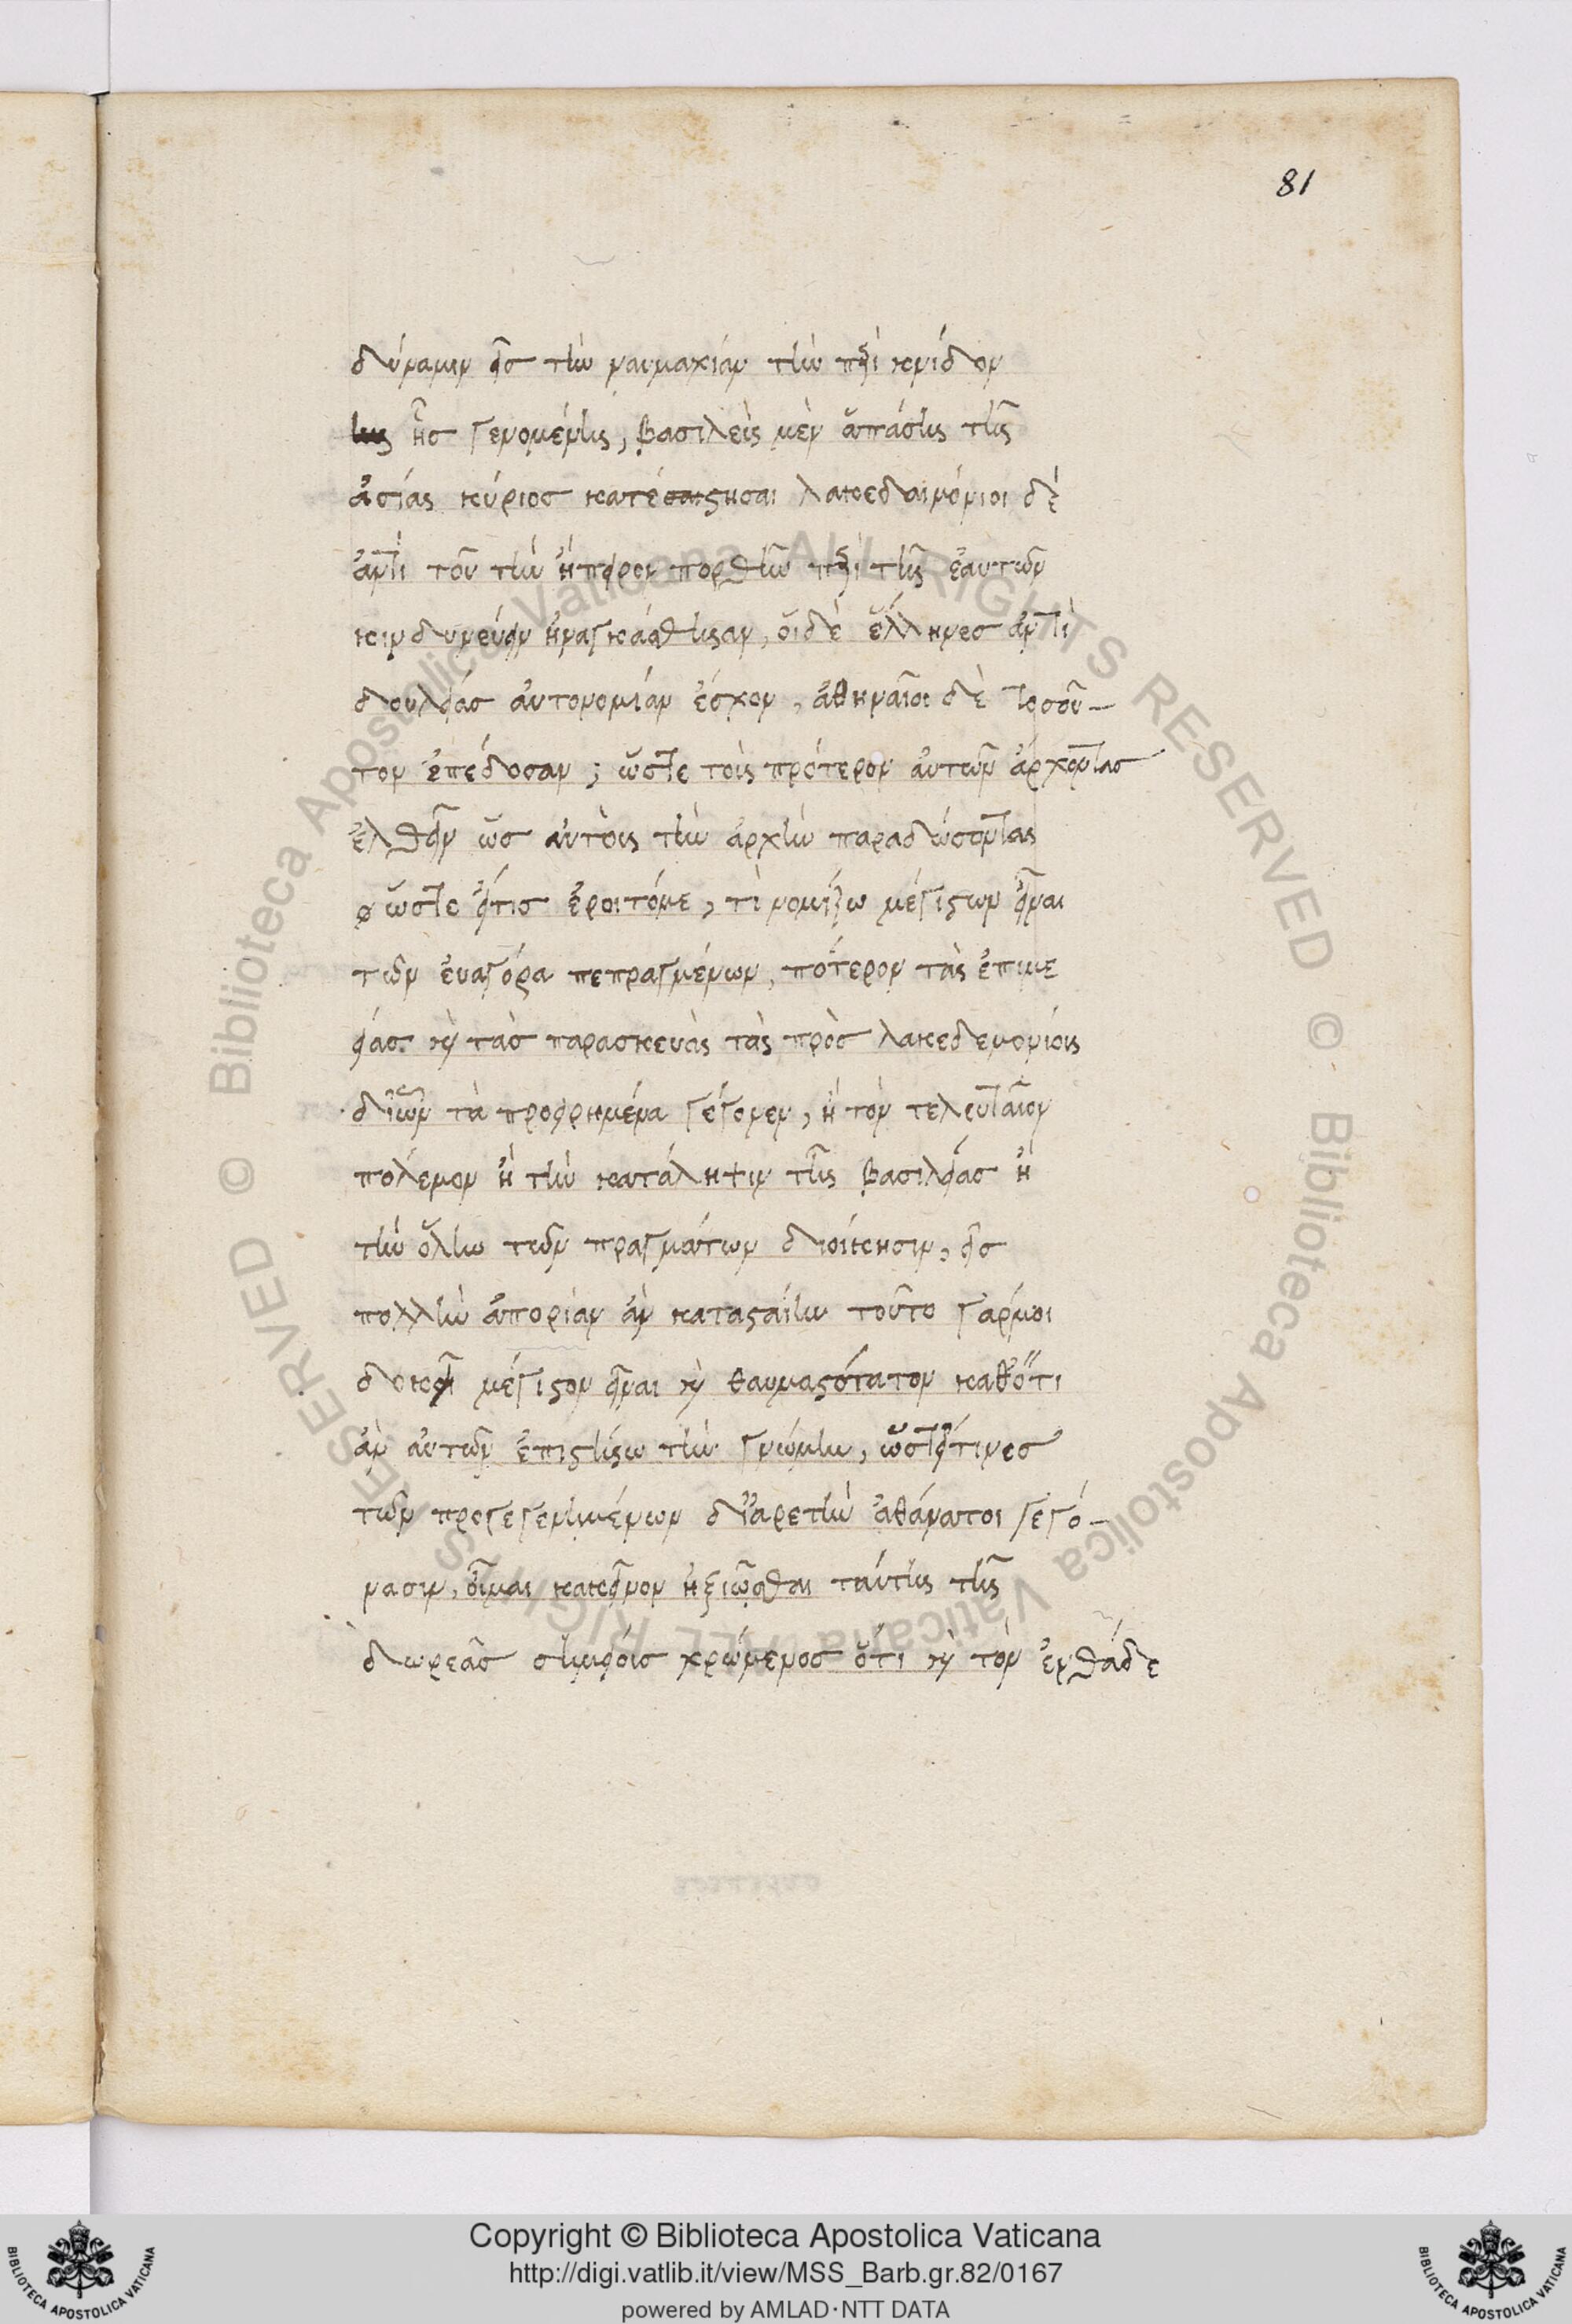 81
δύναμιν εἰς τὴν ναυμαχίαν τὴν περὶ κνίδον
ἧς γενομένης, βασιλεὺς μὲν ἁπάσης τῆς
ἀσίας κύριος κατέστησαι λακεδαιμόνιοι δὲ
ἀντὶ τοῦ τὴν ἤπειρον πορθεῖν περὶ τῆς ἑαυτῶν
κινδυνεύειν ἠναγκάσθησαν, οἱ δὲ ἕλληνες ἀντὶ
δουλείας αὐτονομίαν ἔσχον, ἀθηναῖοι δὲ τοσοῦ-
τον ἐπέδοσαν; ὥστε τοὺς πρότερον αὐτῶν ἄρχοντας
ἐλθεῖν ὡς αὐτοὺς τὴν ἀρχὴν παραδώσοντας
ὥστε εἴτις ἔροιτόμε, τὶ νομίζω μέγιστων εἶναι
τῶν εὐαγόρα πεπραγμένων, πότερον τὰς ἐπιμε
είας καὶ τὰς παρασκευὰς τὰς πρὸς λακεδεμονίους
διὧν τὰ προειρημένα γέγονεν, ἢ τὸν τελευταῖον
πόλεμον ἢ τὴν κατάληψιν τῆς βασιλείας ἢ
τὴν ὅλην τῶν πραγμάτων διοίκησιν, εἰς
πολλὴν ἀπορίαν ἂν κατασταίην τοῦτο γάρμοι
δοκεῖ μέγιστον εἶναι καὶ θαυμαστότατον καθ' ὅτι
ἂν αὐτῶν ἐπιστήσω τὴν γνώμην, ὥστ' εἴτινες
τῶν προγεγενημένων δι' ἀρετὴν ἀθάνατοι γεγό-
νασιν, οἶμαι κακεῖνον ἠξιῶσθαι ταύτης τῆς
δωρεᾶς σημείοις χρώμενος ὅτι καὶ τὸν ἐνθάδε
Copyright © Biblioteca Apostolica Vaticana
http://digi.vatlib.it/view/MSS_Barb.gr.82/0167
powered by AMLAD·NTT DATA
BIBLIOTECA APOSTOLICA VATICANA
BIBLIOTECA APOSTOLICA VATICANA
© Biblioteca Apostolica Vaticana ALL RIGHTS RESERVED © Biblioteca Apostolica Vaticana ALL RIGHTS RESERVED